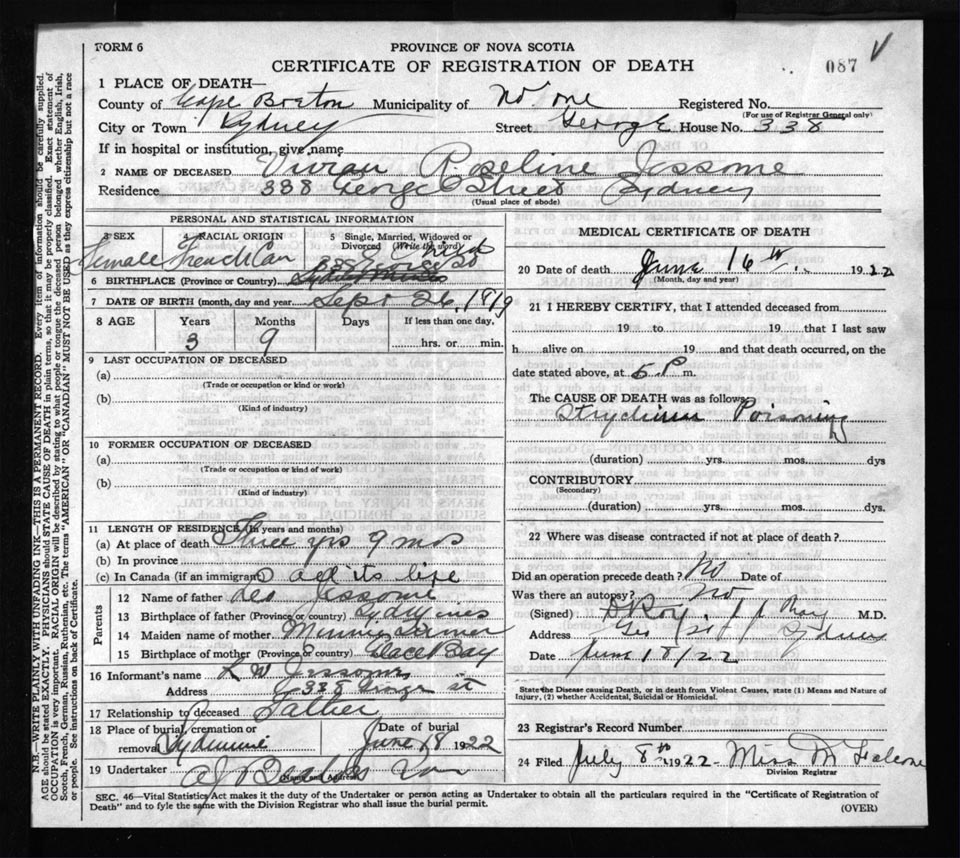 FORM 6
PROVINCE OF NOVA SCOTIA
CERTIFICATE OF REGISTRATION OF DEATH
087
1 PLACE OF DEATH—
County of Cape Breton Municipality of No. one Registered No.
(For use of Registrar General only)
City or Town Sydney Street George House No. 338
If in hospital or institution, give name
2 NAME OF DECEASED Vivian Roseline Jessome
Residence 338 George Street Sydney
(Usual place of abode)
PERSONAL AND STATISTICAL INFORMATION
3 SEX 4 RACIAL ORIGIN 5 Single, Married, Widowed or Divorced (Write the word)
Female French Can Child
6 BIRTHPLACE (Province or Country)
7 DATE OF BIRTH (month, day and year) Sept 26, 1819
8 AGE Years Months Days If less than one day,
3 9 hrs. or min.
9 LAST OCCUPATION OF DECEASED
(a)
(Trade or occupation or kind or work)
(b)
(Kind of industry)
10 FORMER OCCUPATION OF DECEASED
(a)
(Trade or occupation or kind of work)
(b)
(Kind of industry)
11 LENGTH OF RESIDENCE (In years and months)
(a) At place of death Three yrs 9 mos
(b) In province
(c) In Canada (if an immigrant) all its life
Parents
12 Name of father Leo Jessome
13 Birthplace of father (Province or country) Sydney mines
14 Maiden name of mother Minnie
15 Birthplace of mother (Province or country) Glace Bay
16 Informant's name L W Jessome
Address 338 George st
17 Relationship to deceased Father
18 Place of burial, cremation or removal Date of burial
June 18 1922
19 Undertaker
(Name and Address)
MEDICAL CERTIFICATE OF DEATH
20 Date of death June 16th 1922
(Month, day and year)
21 I HEREBY CERTIFY, that I attended deceased from
19 to 19 that I last saw
h alive on 19 and that death occurred, on the
date stated above, at 5 P m.
The CAUSE OF DEATH was as follows:
Strychnine Poisoning
(duration) yrs. mos. dys
CONTRIBUTORY
(Secondary)
(duration) yrs. mos. dys
22 Where was disease contracted if not at place of death?
Did an operation precede death? No Date of
Was there an autopsy? No
(Signed) D Roy M.D.
Address Geo St Sydney
Date June 18/22
State the Disease causing Death, or in death from Violent Causes, state (1) Means and Nature of
Injury, (2) whether Accidental, Suicidal or Homicidal.
23 Registrar's Record Number
24 Filed July 8th 1922 Miss M Falcone
Division Registrar
SEC. 46—Vital Statistics Act makes it the duty of the Undertaker or person acting as Undertaker to obtain all the particulars required in the "Certificate of Registration of
Death" and to fyle the same with the Division Registrar who shall issue the burial permit.
(OVER)
N.B.—WRITE PLAINLY WITH UNFADING INK—THIS IS A PERMANENT RECORD. Every item of information should be carefully supplied.
AGE should be stated EXACTLY. PHYSICIANS should STATE CAUSE OF DEATH in plain terms, so that it may be properly classified. Exact statement of
OCCUPATION is very important. RACIAL ORIGIN will be described by stating to what people or tongue the deceased person belonged whether English, Irish,
Scotch, French, German, Russian, Ruthenian, etc. The terms "AMERICAN" OR "CANADIAN" MUST NOT BE USED as they express citizenship but not a race
or people. See instructions on back of Certificate.